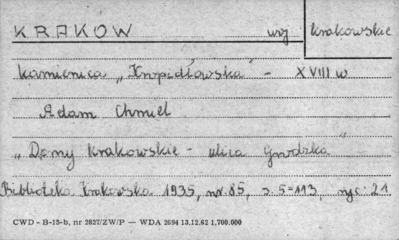 KRAKÓW woj krakowskie
kamienica „Knopidłowska" - XVIII w
Adam Chmiel
„Domy krakowskie - ulica Grodzka"
Biblioteka Krakowska 1935, nr. 85, s. 5-113, ryc: 21
CWD - B-15-b, nr 2827/ZW/P — WDA 2694 13.12.62 1.700.000